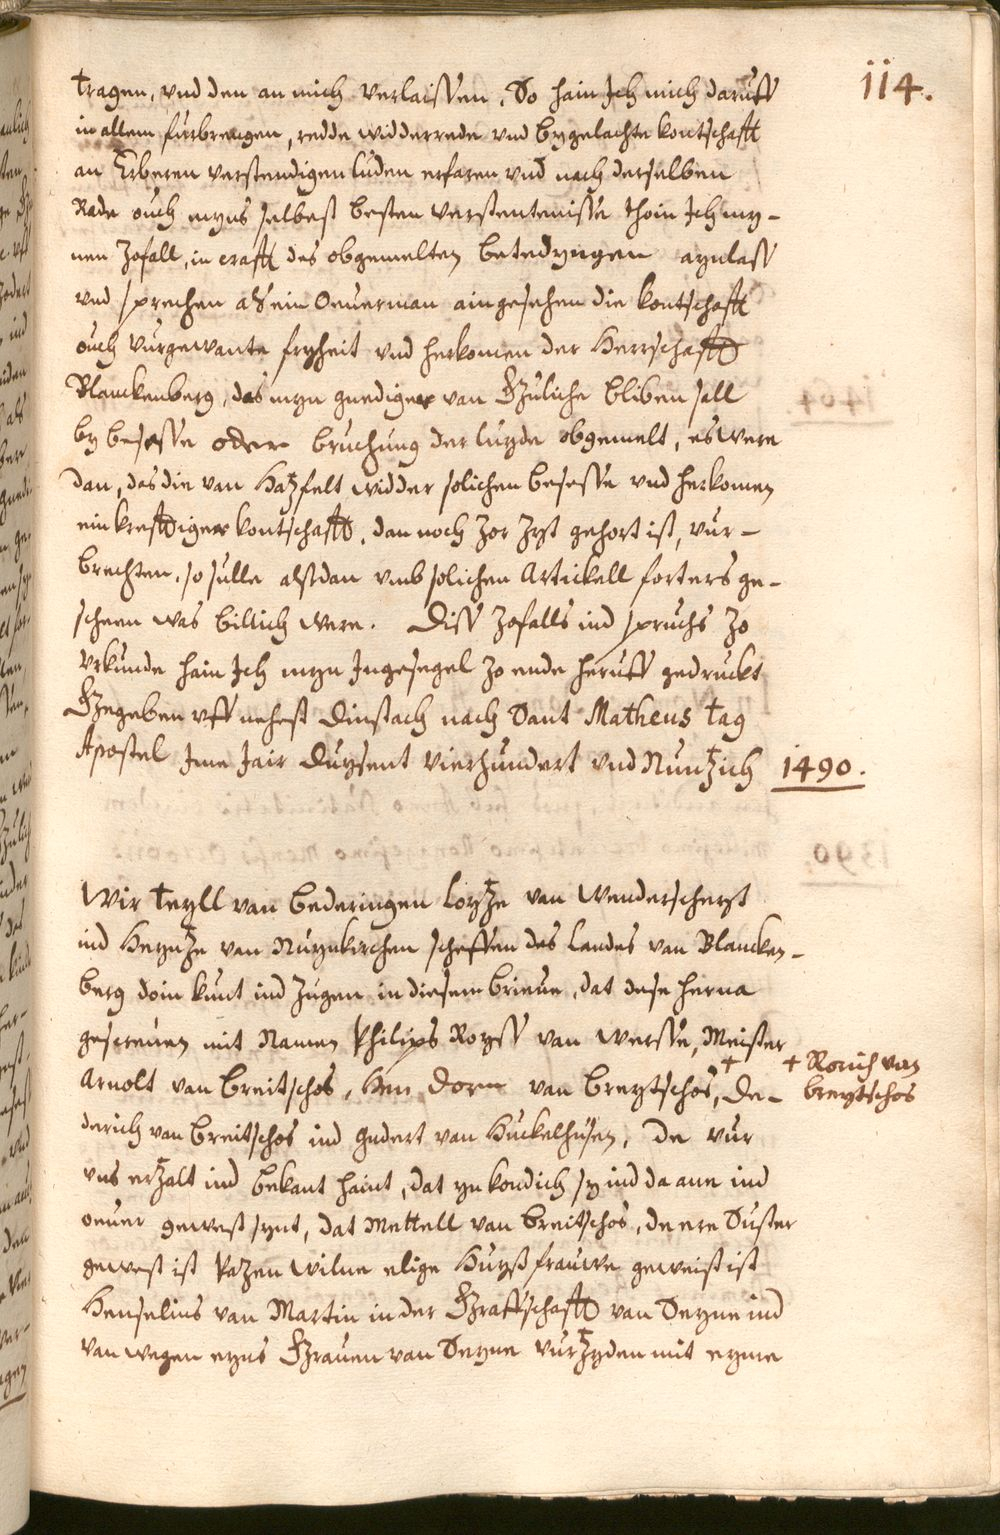 114.
tragen, vnd den an mich verlaissen, So hain Ich mich daruff
in allem furbrengen, redde widderrede vnd bygelachte kontschafft
an Erberen verstendigen luden erfaren vnd nach derselben
Rade ouch myns selbest besten verstentenisse thoin Ich my-
nen Zofall, in crafft des obgemelten betedyngen aynlass
vnd sprechen als ein Oeuerman aingesehen die kontschafft
ouch vurgewante fryheit vnd herkomen der Herrschafft
Blanckenberg, das myn gnediger van Guliche bliben sall
by besesse oder bruchung der luyde obgemelt, es were
dan, das die van Hatzfelt widder solichen besesse vnd herkomen
ein krefftiger kontschafft, dan noch zor zyt gehort ist, vur-
brechten, so sulle alsdan vmb solichen Artickell forters ge-
scheen was billich were. Diss Zofalls ind spruchs zo
Vrkunde hain Ich myn Ingesegel zo ende heruff gedruckt
Gegeben vff nehest Dinstach nach Sant Matheus tag
Apostel Ime Jair Duysent vierhundert vnd Nuntzich 1490.
Wir teyll van bederingen Loytze van Wenderscheyt
ind Heyntze van Nuynkirchen scheffen des Landes van Blancken-
berg doin kunt ind zugen in diesem brieue, dat dese herna
gescreuen mit Namen Philips Royss van Wersse, Meister
Arnolt van breitschos, Hen Dorn van breytschos, + De-
+ Ronich van
breytschos
derich van breitschos ind Gudert van Huckelhusen, De vur
vns ertzalt ind bekant haint, dat yn kondich sy ind da ane ind
oeuer gewest synt, dat Mettell van breitschos, de ere Suster
gewest ist Patzen wilne elige Huyssfrauwe geweist ist
Henselins van Martin in der Graffschafft van Seyne ind
van wegen eyns Grauen van Seyne vurtzyden mit eyme